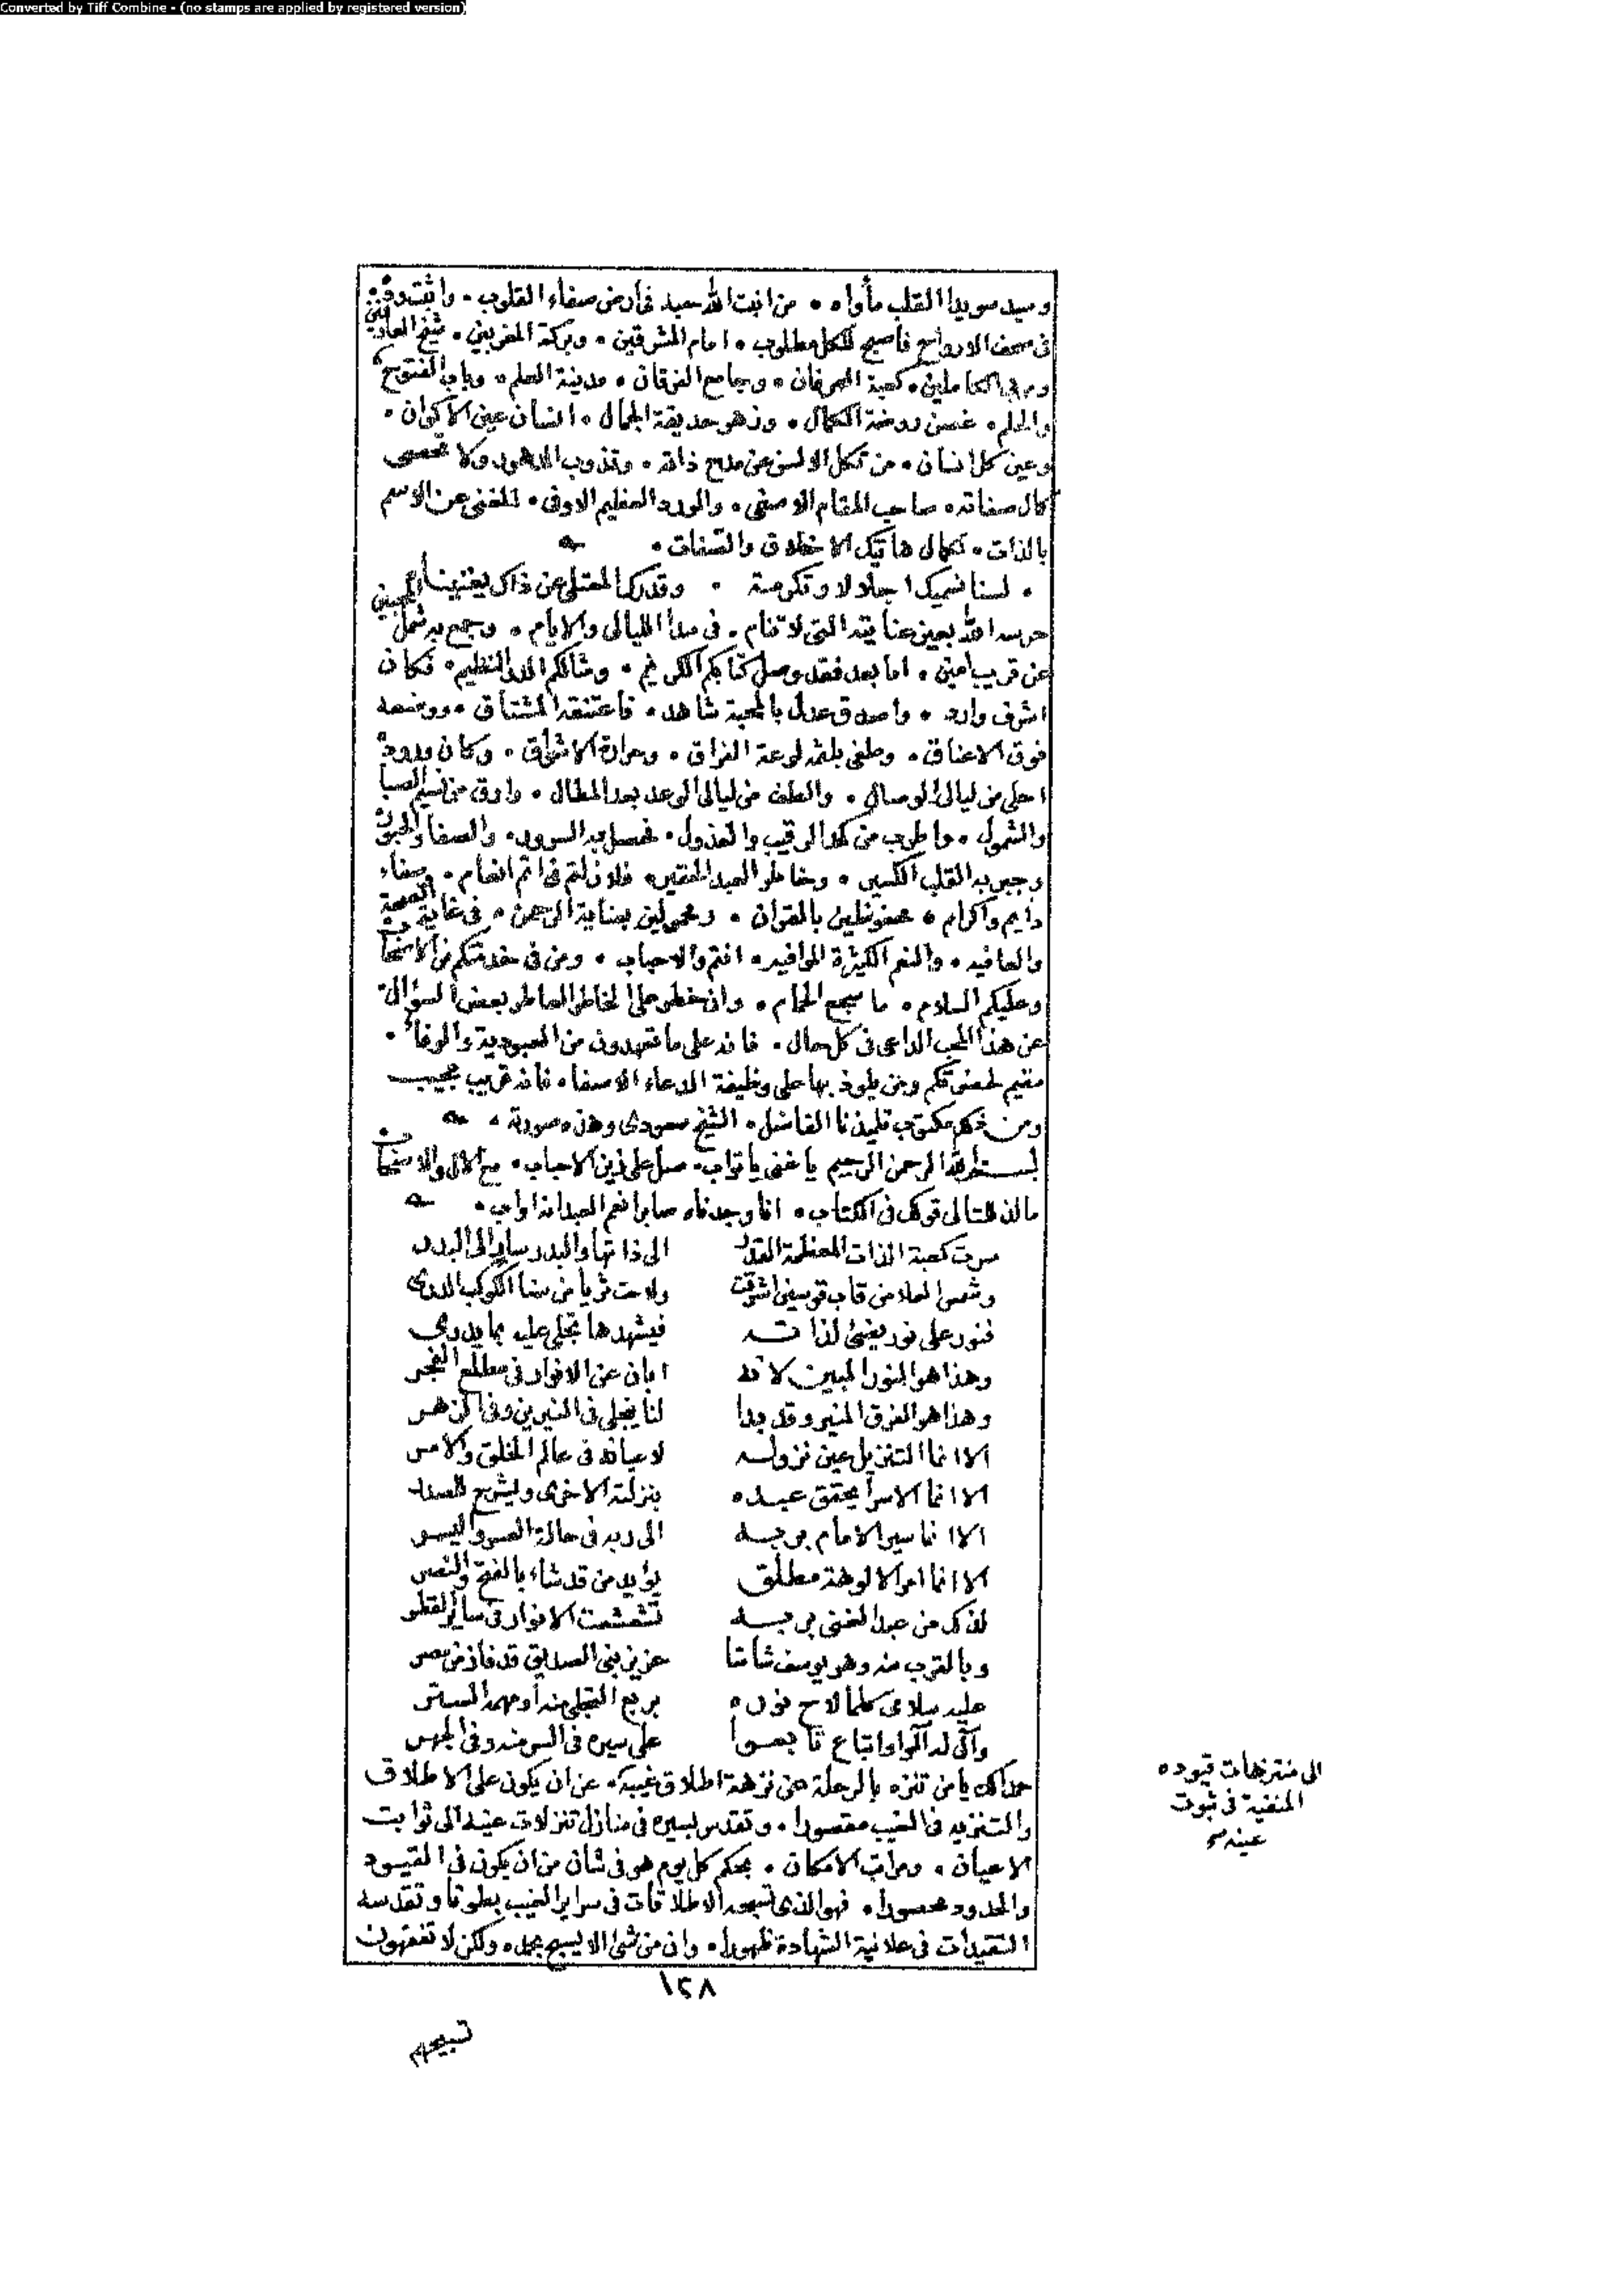 Converted by Tiff Combine - (no stamps are applied by registered version)
وصير سويدا القلب مأواه • من انبت الله حبه فى أرض صفاء القلوب • واثبت
فى صحف الارواح فاصبح للكل مطلوب • امام المشرقين • وبركة المغربين • شيخ العارفين
ومربى الكاملين • كعبة العرفان • وجامع الفرقان • مدينة العلم • وباب الفتوح
والحلم • غصن روضة الكمال • وزهر حديقة الجمال • انسان عين الاكوان •
وعين كل انسان • من تكل الالسن عن مدح ذاته • وتذوب الدهور ولا تحصى
كمال صفاته • صاحب المقام الاصفى • والورد العظيم الاوفى • المغنى عن الاسم
بالذات • لكمال هاتيك الاخلاق والصفات •
• لسنا نسميك اجلالا وتكرمة • وقدرك المعتلى عن ذاك يغنينا
حرسه الله بعين عنايته التى لا تنام • فى مدا الليالى والايام • وجمع به شمل المحبين
عن قريب امين • اما بعد فقد وصل كتابكم الكريم • ومثالكم الدر النظيم • فكان
اشرف وارد • واصدق عدل بالمحبة شاهد • فاعتنقه المشتاق • ووضعه
فوق الاعناق • وطفى بلثمه لوعة الفراق • وحرارة الاشواق • وكان وروده
احلى من ليالى الوصال • والطف من ليالى الوعد بعد المطال • وارق من نسيم الصبا
والشمول • واطرب من كمد الرقيب والعذول • فحصل به السرور • والصفا والحبور
وجبر به القلب الكسير • وخاطر العبد الحقير • فلا زلتم فى اتم انعام • وصفاء
دايم واكرام • محفوظين بالقران • ومحمولين بعناية الرحمن • فى غاية الصحة
والعافيه • والنعم الكثيرة الوافيه • انتم والاحباب • ومن فى خدمتكم من الاصحاب
وعليكم السلام • ما سجع الحمام • وان خطر على الخاطر العاطر بعض السؤال
عن هذا المحب الداعى فى كل حال • فانه على ما تعهدون من العبودية والوفاء •
مقيم لحضرتكم ومن يلوذ بها على وظيفة الدعاء الاصفا • فانه قريب مجيب
ومن ذلك مكتوب تلميذنا الفاضل • الشيخ سعودى وهذه صورته •
بسم الله الرحمن الرحيم يا غنى يا تواب • صل على زين الاحباب • مع الال والاصحاب
ما لذ للتالى قولك فى الكتاب • انا وجدناه صابرا نعم العبد انه اواب •
سرت كعبة الذات المعظمة القدر الى ذاتها والبدر سار الى البدر
وشمس العلا من قاب قوسين اشرقت ولاحت ثريا من سنا الكوكب الدرى
فنور على نور يضئ لذاته فيشهدها تجلى عليه بما يدرى
وهذا هو النور المبين لانه ابان عن الانوار فى مطلع الفجر
وهذا هو الفرق المنير وقد بدا لنا ينجلى فى النيرين وفى الزهر
الا انما التنزيل عين نزوله لاعيانه فى عالم الخلق والامر
الا انما الاسرا يحقق عبده بنزلته الاخرى ويشرح للصدر
الا انما سير الامام بربه الى ربه فى حالة العسر واليسر
الا انما امر الالوهة مطلق يؤيد من قد شاء بالفتح والنصر
لذلك من عبد الغنى بربه تشعشعت الانوار فى ساير القطر
وبالقرب منه وهو يوسف شامنا عزيز بنى الصديق قد فاز من مصر
عليه سلامى كلما لاح نوره بربع التجلى منه أو مهمه الستر
وآل له آلوا واتباع تابعوا على سيره فى السر منه وفى الجهر
حمدا لك يا من تنزه بالرحلة عن نزهة اطلاق غيبه • عن ان يكون على الاطلاق
والتنزيه فى الغيب مقصورا • وتقدس بسيره فى منازل تنزلات عينه الى ثوابت
الاعيان • ومراتب الامكان • بحكم كل يوم هو فى شأن من ان يكون فى القيود
والحدود محصورا • فهو الذى تسبحه الاطلاقات فى سراير الغيب بطونا وتقدسه
التقيدات فى علانية الشهادة ظهورا • وان من شئ الا يسبح بحمده ولكن لا تفقهون
الى منتزهات قيوده
المنفية فى ثبوت
عينه صح
١٢٨
تسبيحهم